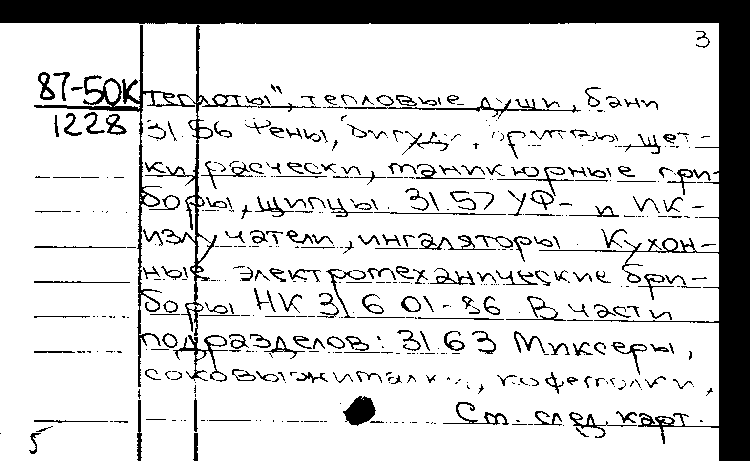 3
87-50К
1228
теплоты", тепловые души, бани
31 56 Фены, бигуди, бритвы, щет-
ки, расчески, маникюрные при-
боры, щипцы. 31 57 УФ- и ИК-
излучатели, ингаляторы. Кухон-
ные электромеханические при-
боры НК 31 6 01-86 В части
подразделов: 31 63 Миксеры,
соковыжималки, кофемолки,
См. след. карт.
5